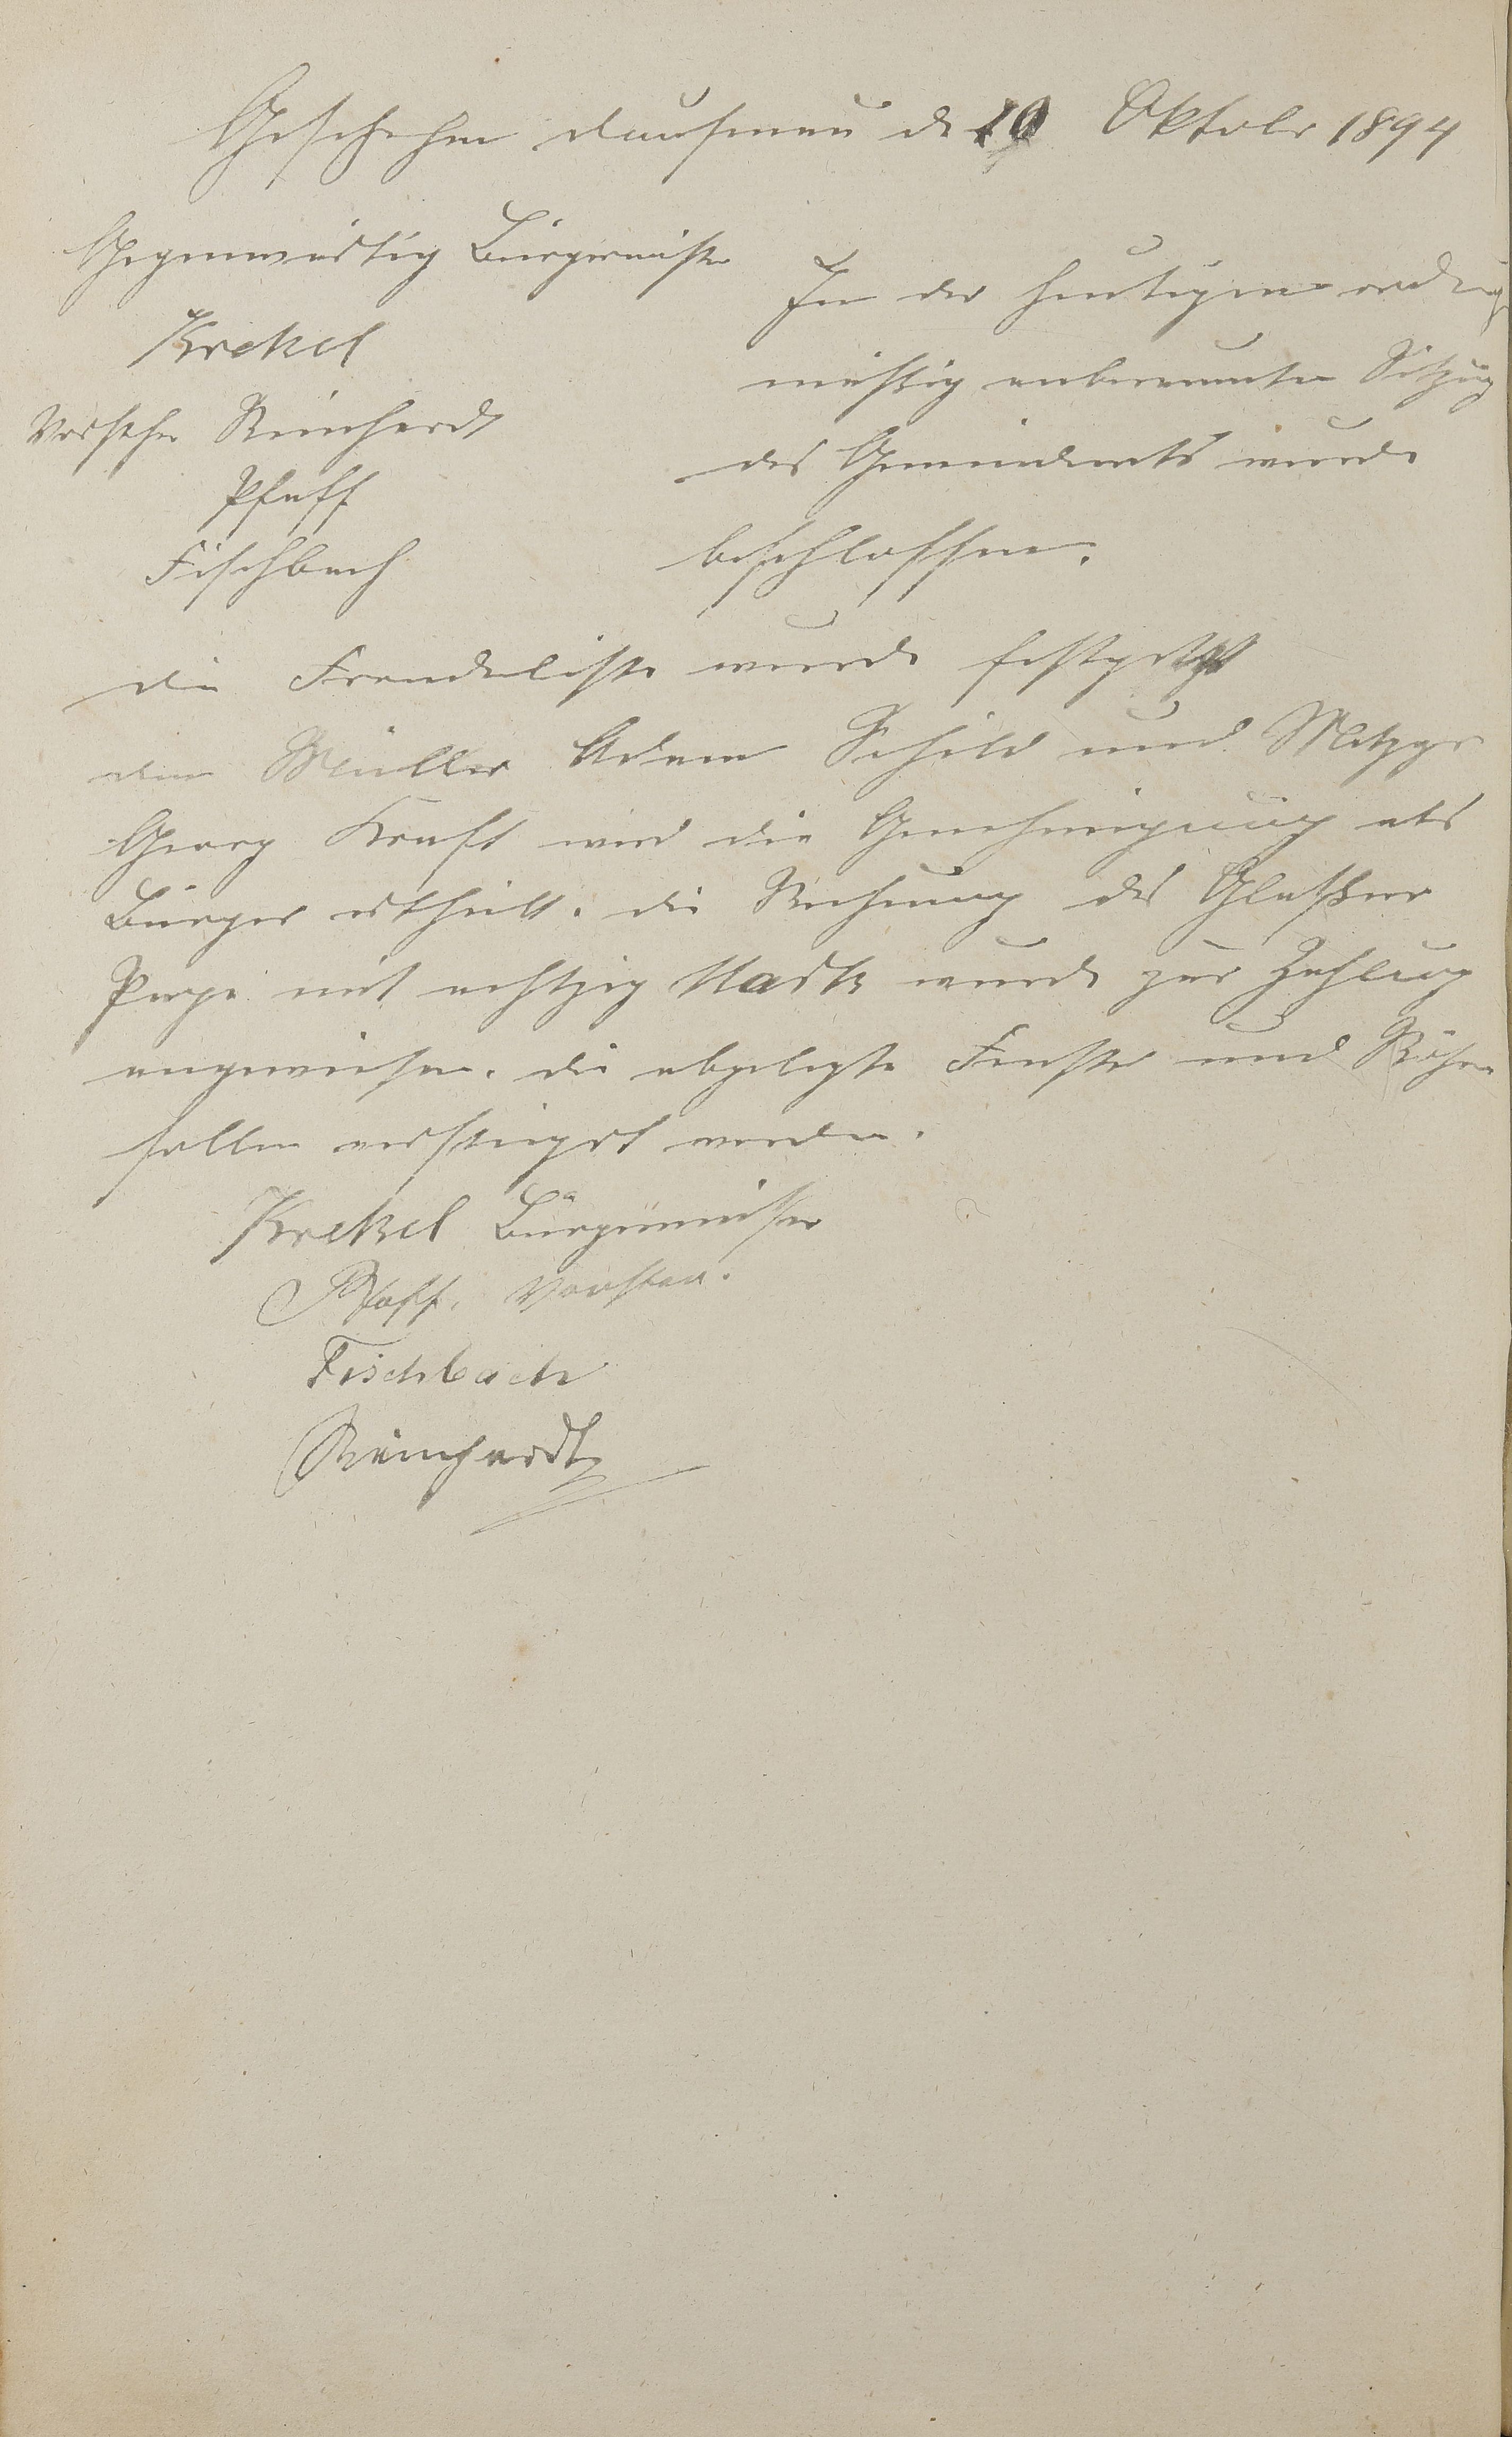 Geschehen Dausenau d 10 Oktober 1894
Gegenwärtig Bürgermeister
Krekel
Vorsteher Reinhardt
Pfaff
Fischbach
In der heutigen ordnungs
mässig anberaumten Sitzung
des Gemeinderats wurde
beschlossen.
die wurde festgesetzt
dem Müller Adam Schild und Metzger
Georg Kraft wird die Genehmigung als
Bürger ertheilt. die Rechnung des
mit achtzig Mark wurde zur Zahlung
angewiesen. die abgelegte Fenster und
sollen versteigert werden.
Krekel Bürgermeister
Pfaff, Vorsteher.
Fischbach
Reinhardt